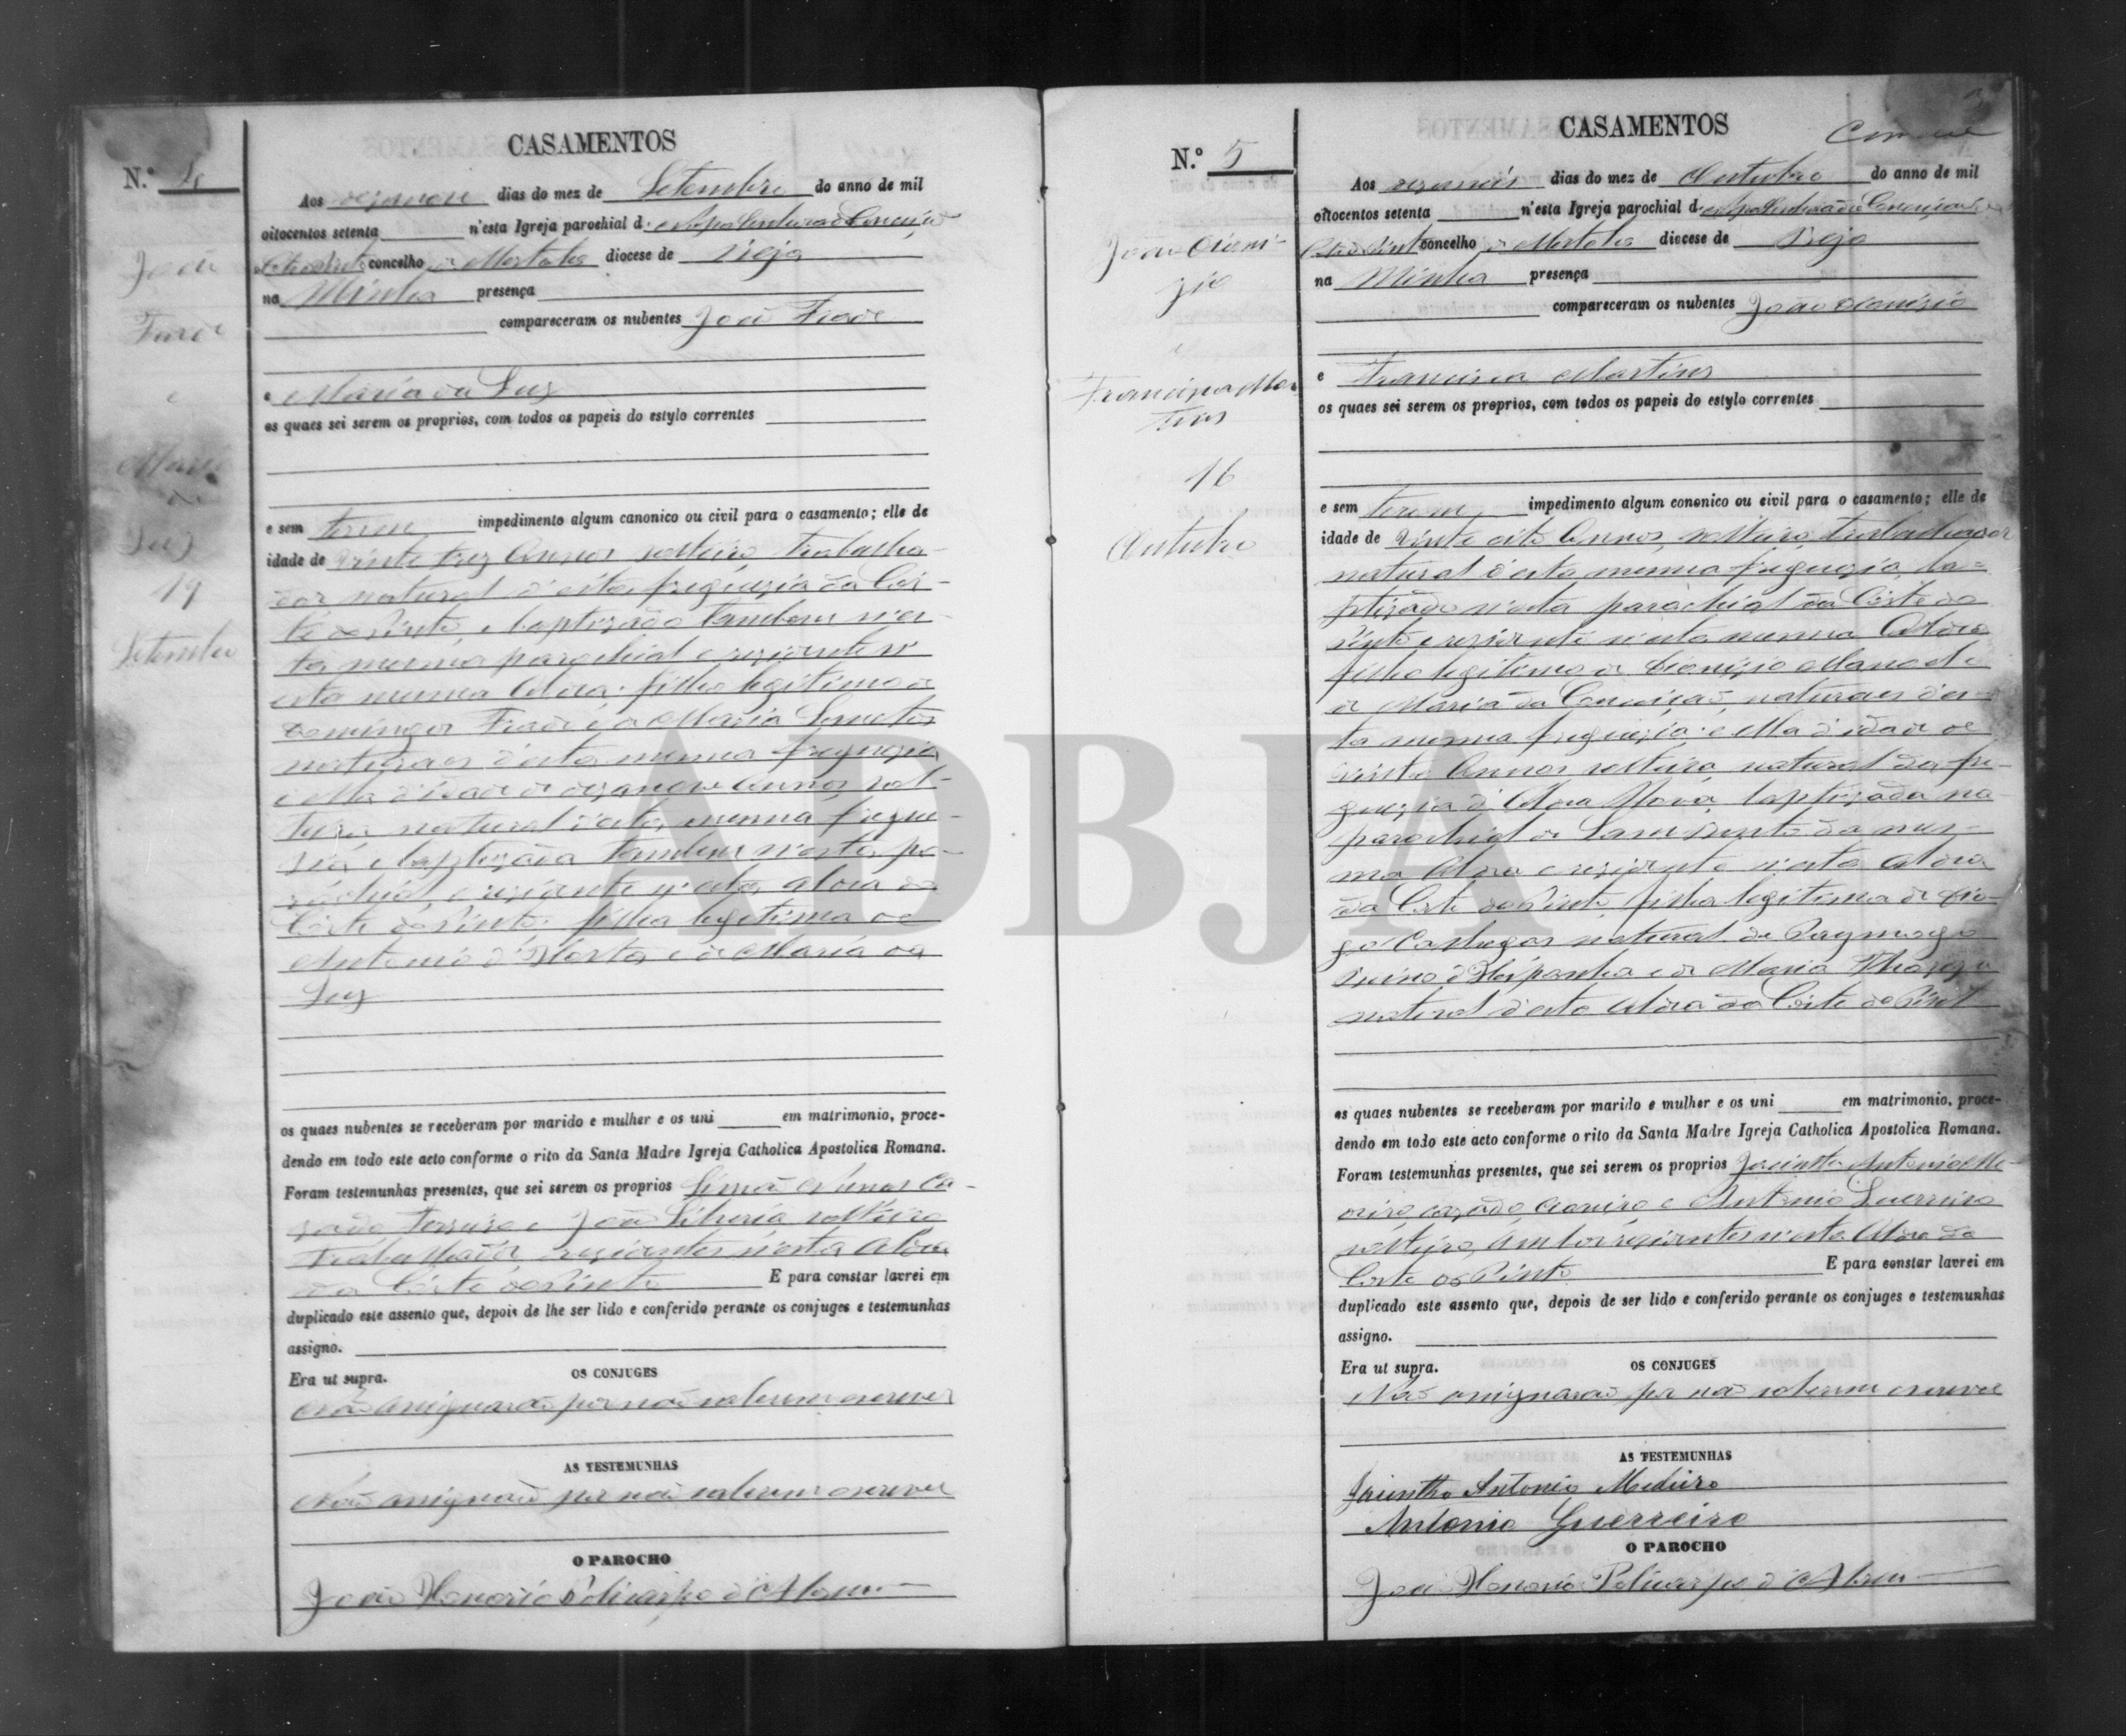 CASAMENTOS
N.º 4
Aos dezanove dias do mez de Setembro do anno de mil
oitocentos setenta n'esta Igreja parochial d
concelho de Mertola diocese de Beja
na Minha presença
compareceram os nubentes João Frade
e Maria da Luz
os quaes sei serem os proprios, com todos os papeis do estylo correntes
e sem terem impedimento algum canonico ou civil para o casamento; elle de
idade de vinte trez Annos solteiro, Trabalha-
dor natural d'esta freguezia da Cor-
te do Pinto, e baptizado tambem n'es-
ta mesma parochial e rezidente n'
esta mesma Aldeia: filho legitimo de
Domingos Frade e de Maria
naturaes d'esta mesma freguezia
e ella d'idade de dezanove Annos sol-
teira natural d'esta mesma fregue-
zia e baptizada tambem n'esta pa-
rochial, e rezidente n'esta Aldeia da
Corte do Pinto: filha legitima de
Antonio d'Horta e de Maria da
Luz
os quaes nubentes se receberam por marido e mulher e os uni em matrimonio, proce-
dendo em todo este acto conforme o rito da Santa Madre Igreja Catholica Apostolica Romana.
Foram testemunhas presentes, que sei serem os proprios Simão Nunes Ca-
zado e João solteiro
Trabalhador, rezidentes n'esta Aldeia
da Corte do Pinto E para constar lavrei em
duplicado este assento que, depois de lhe ser lido e conferido perante os conjuges e testemunhas
assigno.
Era ut supra.
OS CONJUGES
Não assignarão por não saberem escrever
AS TESTEMUNHAS
Não assignarão por não saberem escrever
O PAROCHO
João Honorio Policarpo d'Abreu
João
Frade
e
Maria
da
Luz
19
Setembro
CASAMENTOS
N.º 5
Aos dezaseis dias do mez de Outubro do anno de mil
oitocentos setenta n'esta Igreja parochial d
concelho de Mertola diocese de Beja
na Minha presença
compareceram os nubentes João Dionizio
e Francisca Martins
os quaes sei serem os proprios, com todos os papeis do estylo correntes
e sem terem impedimento algum cononico ou civil para o casamento; elle de
idade de vinte oito Annos, solteiro, Trabalhador
natural d'esta mesma freguezia, ba-
ptizado n'esta parochial da Corte do
Pinto e rezidente n'esta mesma Aldeia
filho legitimo de Dionizio Manoel e
de Maria da Conceição, naturaes d'es-
ta mesma freguezia: e ella d'idade de
vinte Annos solteira natural da fre-
guezia d'Aldeia Nova, baptizada na
parochial de Sam Bento da mes-
ma Aldeia e rezidente n'esta Aldeia
da Corte do Pinto, filha legitima de Die-
go natural de Paymogo
Reino d'Hespanha e de Maria
natural d'esta Aldeia da Corte do Pinto
os quaes nubentes se receberam por marido e mulher e os uni em matrimonio, proce-
dendo em todo este acto conforme o rito da Santa Madre Igreja Catholica Apostolica Romana.
Foram testemunhas presentes, que sei serem os proprios Jacintho Antonio Me-
cazado e Antonio Guerreiro
solteiro, ambos rezidentes n'esta Aldeia da
Corte do Pinto E para constar lavrei em
duplicado este assento que, depois de ser lido e conferido perante os conjuges e testemunhas
assigno.
Era ut supra.
OS CONJUGES
Não assignarão por não saberem escrever
AS TESTEMUNHAS
Jacintho Antonio Madeira
Antonio Guerreiro
O PAROCHO
João Honorio Policarpo d'Abreu
João Dioni-
zio
e
Francisca Mar
tins
16
Outubro
ADBJA